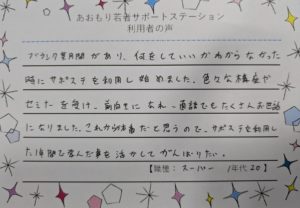 あおもり若者サポートステーション
利用者の声
ブランク業月間があり、何をしていいかわからなかった
時にサポステを利用し始めました。色々な講座や
セミナーを受け、前向きになれ、面談でもたくさんお世話
になりました。これからが本番だと思うので、サポステを利用し
た1年間で学んだ事を活かしてがんばりたい。
【職種：スーパー /年代20】